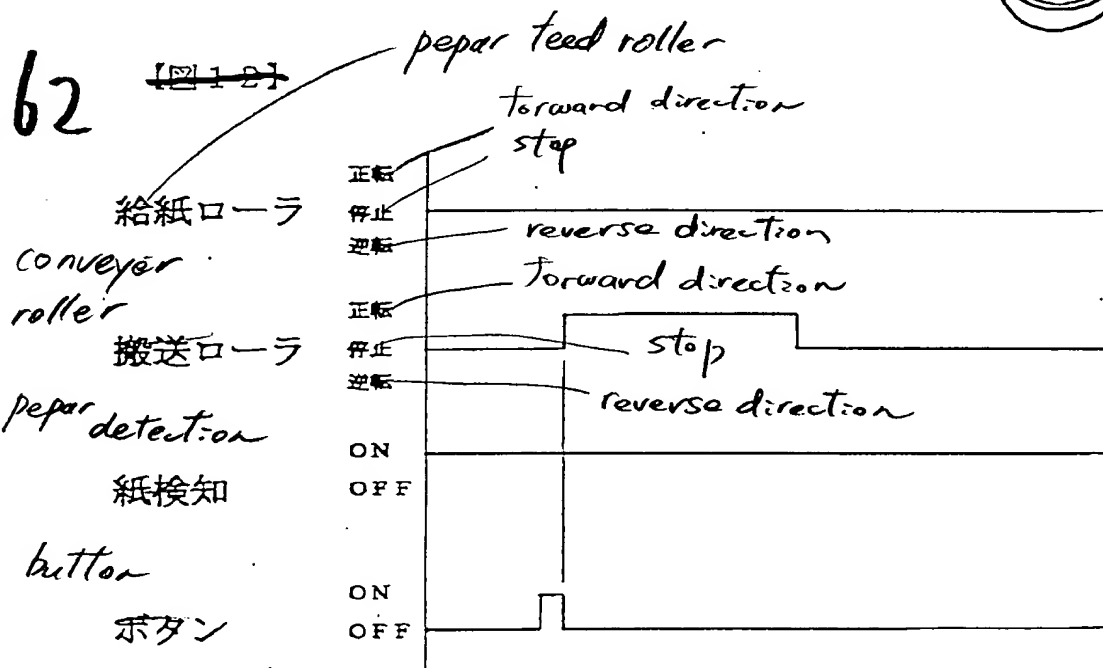 pepar feed roller
62 【図12】
forward direction
stop
正転
給紙ローラ 停止
逆転 reverse direction
conveyer
roller
正転 forward direction
搬送ローラ 停止 stop
逆転 reverse direction
pepar detection
ON
紙検知 OFF
button
ON
ボタン OFF